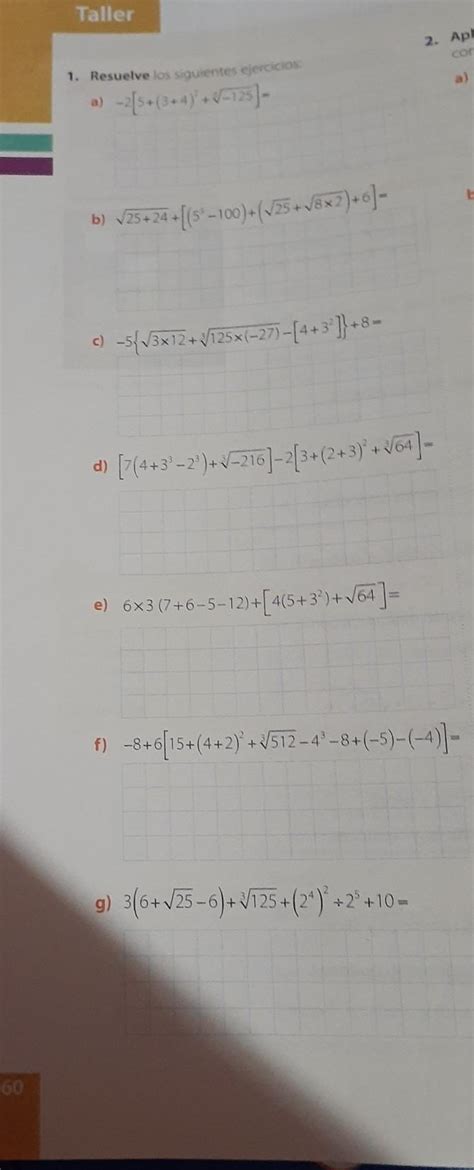 Taller
1. Resuelve los siguientes ejercicios:
a) −2[5+(3+4)²+∛−125]=
b) √25+24+[(5³−100)+(√25+√8×2)+6]=
c) −5{√3×12+∛125×(−27)−[4+3²]}+8=
d) [7(4+3³−2³)+∛−216]−2[3+(2+3)²+∛64]=
e) 6×3(7+6−5−12)+[4(5+3²)+√64]=
f) −8+6[15+(4+2)²+∛512−4³−8+(−5)−(−4)]=
g) 3(6+√25−6)+∛125+(2⁴)²÷2⁵+10=
2. Apl
cor
a)
60